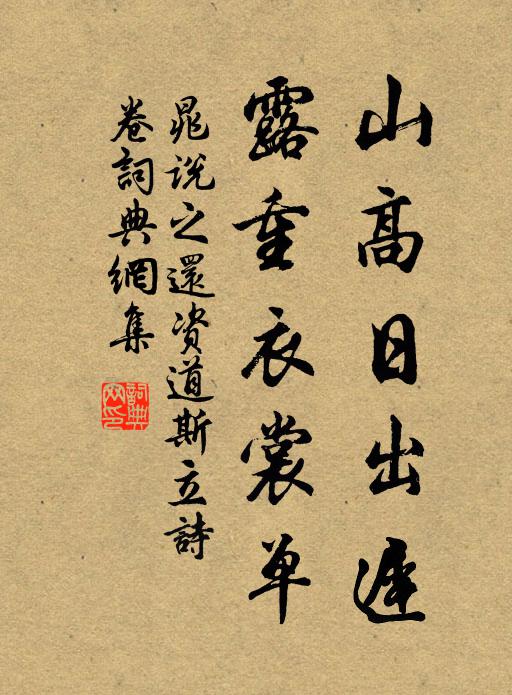 山高日出遲
露重衣裳单
晁说之還资道斯立詩
卷詞典網集
詞典網印